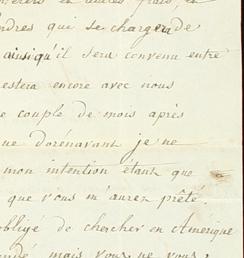 et autres frais, et
qui se chargera de
ainsi qu'il sera convenu entre
restera encore avec nous
e couple de mois après
ue dorénavant je ne
mon intention étant que
que vous m'aurez prêté.
obligé de chercher en Amérique
mais vous ne vous